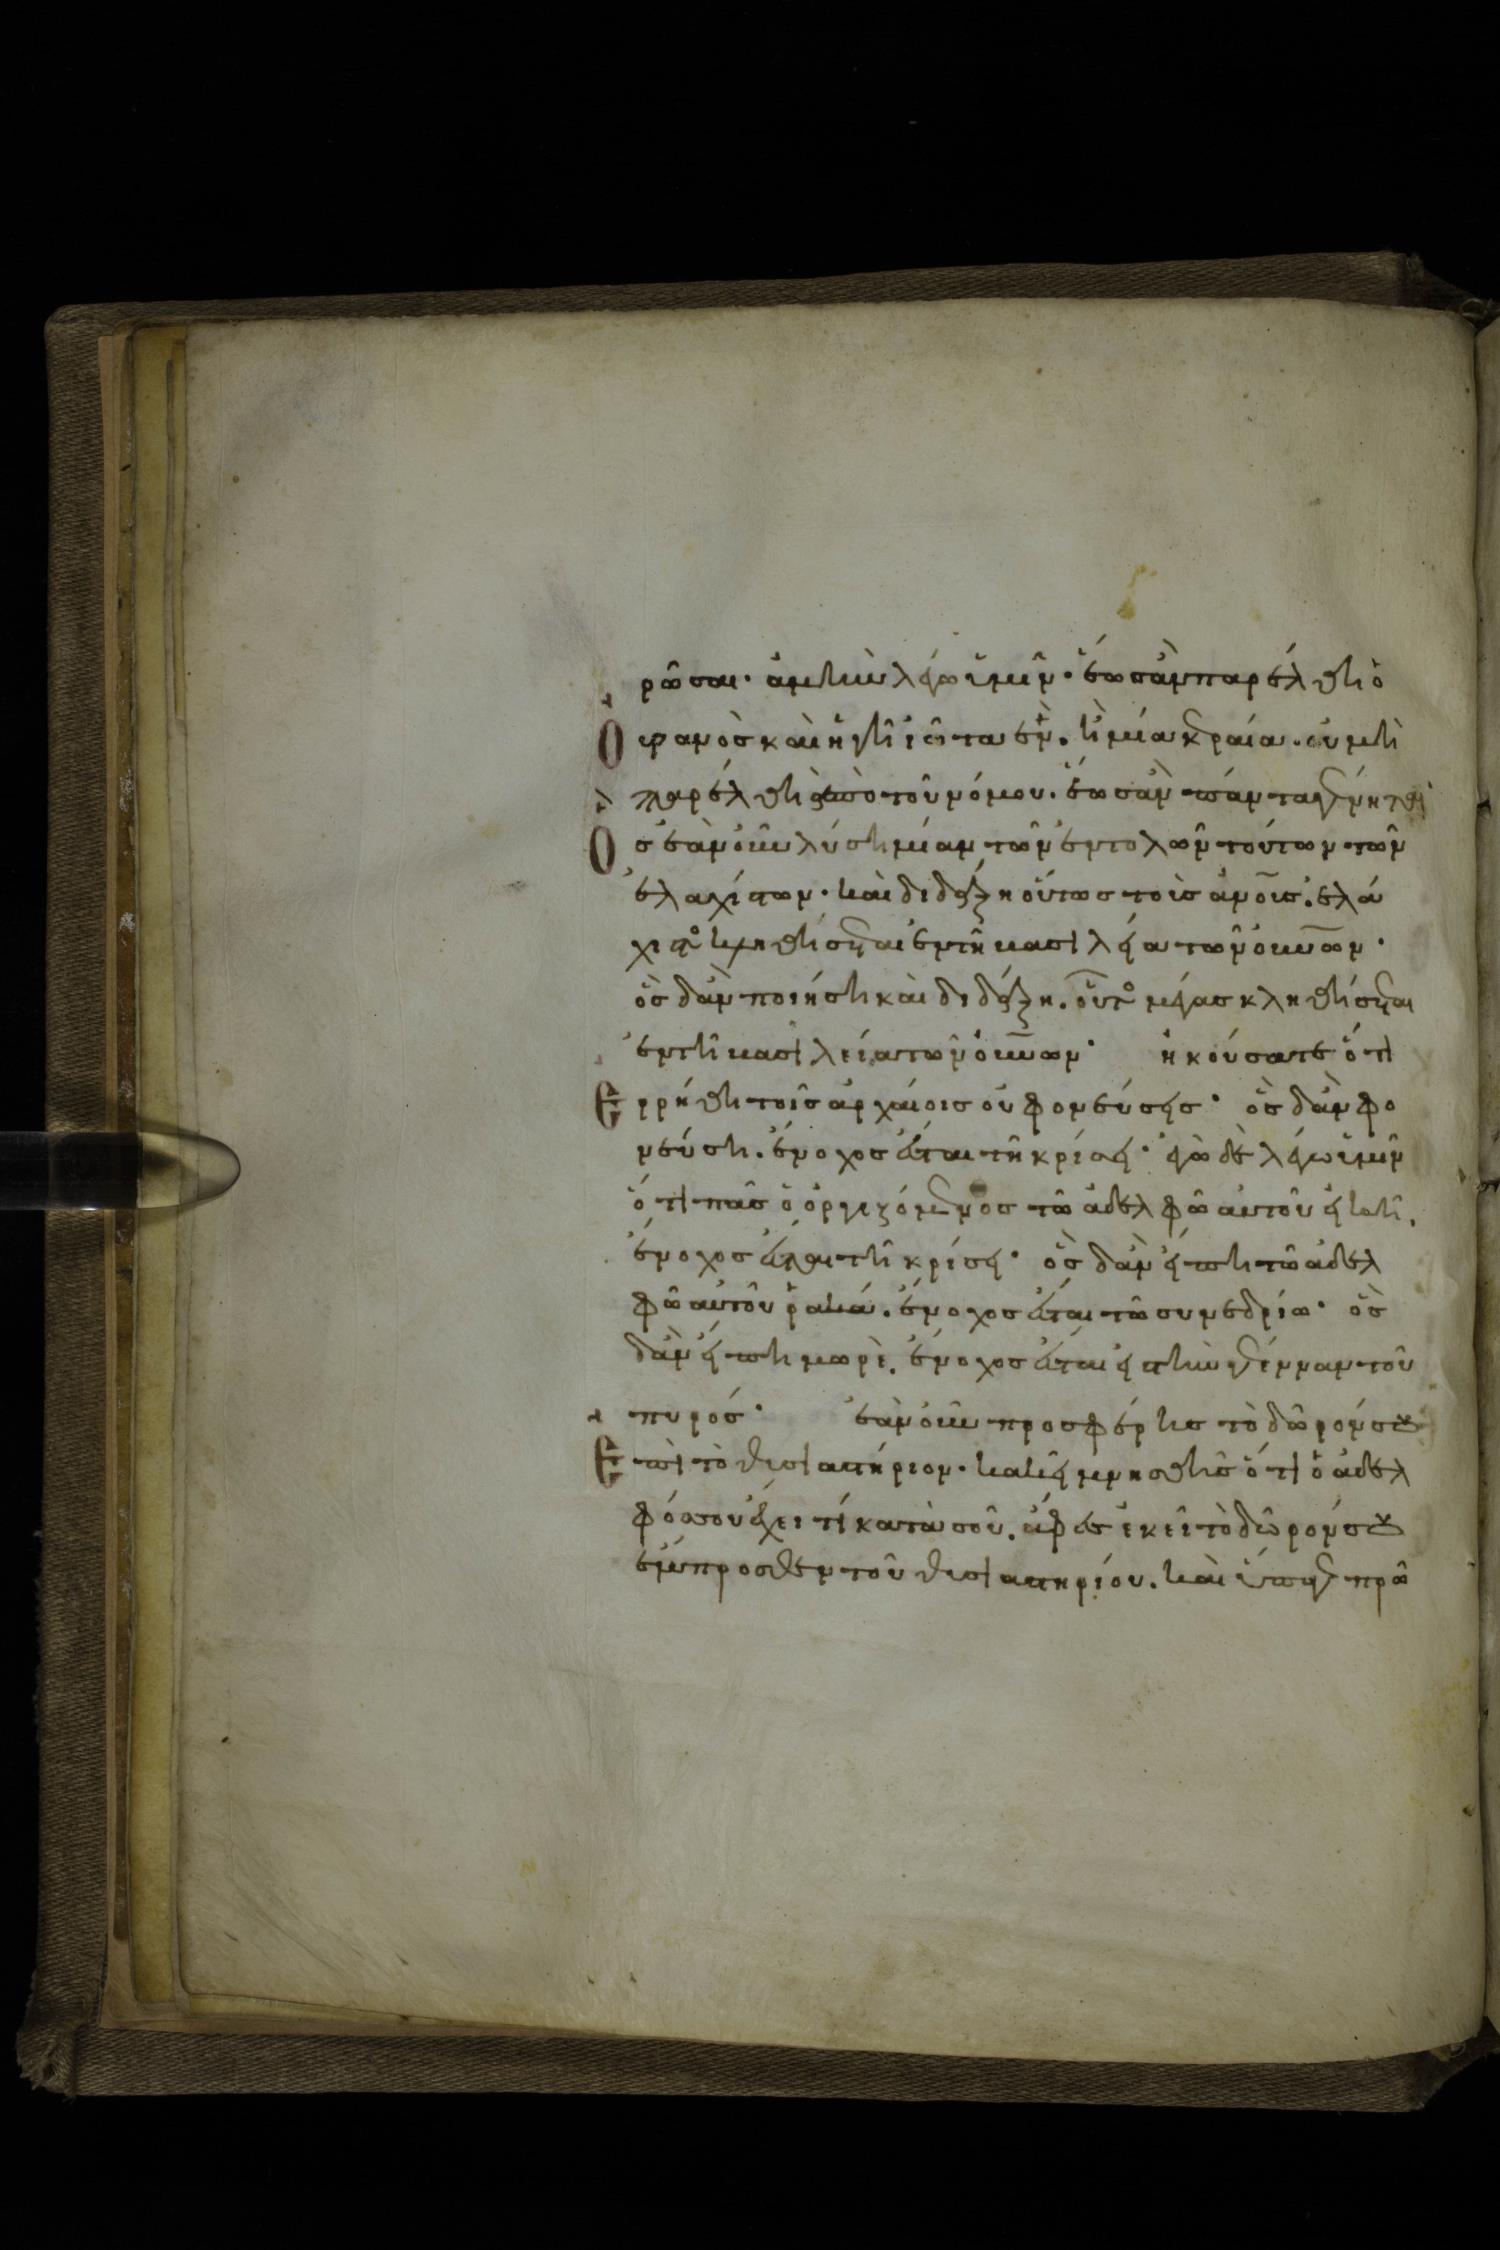 ρῶσαι· ἀμὴν λέγω ὑμῖν· ἕως ἂν παρέλθη ὁ
οὐρανὸς καὶ ἡ γῆ ἰῶτα ἓν. ἢ μία κεραία. οὐ μὴ
παρέλθη ἀπὸ τοῦ νόμου. ἕως ἂν πάντα γένηται
Ὃς ἐὰν οὖν λύση μίαν τῶν ἐντολῶν τούτων τῶν
ἐλαχίστων· καὶ διδάξη οὕτως τοὺς ἀνοις. ἐλά
χιστος κληθήσεται ἐν τῆ βασιλεία τῶν οὐνων·
ὃς δ' ἂν ποιήση καὶ διδάξη. οὗτος μέγας κληθήσεται
ἐν τῆ βασιλεία τῶν οὐνων· ἠκούσατε ὅτι
Ἐρρήθη τοῖς ἀρχαίοις οὐ φονεύσεις· ὃς δ' ἂν φο
νεύση. ἔνοχος ἔσται τῆ κρίσει· ἐγὼ δὲ λέγω ὑμῖν
ὅτι πᾶς ὁ ὀργιζόμενος τῶ ἀδελφῶ αὐτοῦ εἰκῆ.
ἔνοχος ἔσται τῆ κρίσει· ὃς δ' ἂν εἴπη τῶ ἀδελ
φῶ αὐτοῦ ῥακά. ἔνοχος ἔσται τῶ συνεδρίω· ὃς
δ' ἂν εἴπη μωρὲ. ἔνοχος ἔσται εἰς τὴν γέενναν τοῦ
πυρός· ἐὰν οὖν προσφέρης τὸ δῶρόν σου
Ἐπὶ τὸ θυσιαστήριον· κακεῖ μνησθῆς ὅτι ὁ ἀδελ
φός σου ἔχει τί κατὰ σοῦ. ἄφες ἐκεῖ τὸ δῶρόν σου
ἔμπροσθεν τοῦ θυσιαστηρίου. καὶ ὕπαγε πρῶ